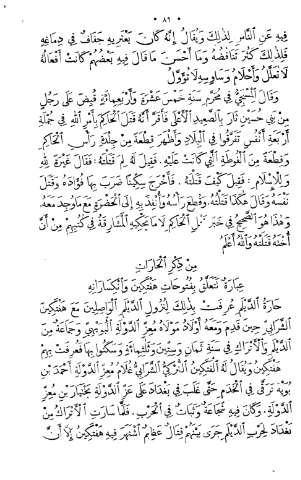 ٨٦
فيه عن الناس لذلك ويقال إنه كان يعتريه جفاف في دماغه
فلذلك كثر تناقضه وما أحسن ما قال فيه بعضهم كانت أفعاله
لا تعلل وأحلام وساوسه لا تؤول
وقال المسبحي في محرم سنة خمس عشرة وأربعمائة قبض على رجل
من بني حسين ثار بالصعيد الأعلى فأقر أنه قتل الحاكم بأمر الله في جملة
أربعة أنفس تفرقوا في البلاد وأظهر قطعة من جلدة رأس الحاكم
وقطعة من الفوطة التي كانت عليه فقيل له لم قتلته فقال غيرة لله
وللإسلام فقيل كيف قتلته فأخرج سكينا ضرب بها فؤاده وقتل
نفسه وقال هكذا قتلته وقطع رأسه وأنفذ به إلى الحضرة مع ما وجد معه
وهذا هو الصحيح في خبر قتل الحاكم لا ما يحكيه المشارقة في كتبهم من أن
أخته قتلته والله أعلم
من ذكر الحارات
عبارة تتعلق بفتوحات هفتكين وانكساراته
حارة الديلم عرفت بذلك لنزول الديلم الواصلين مع هفتكين
الشرابي حين قدم ومعه أولاد مولاه معز الدولة البويهي وجماعة من
الديلم والأتراك في سنة ثمان وستين وثلثمائة وسكنوا بها فعرفت بهم
هفتكين ويقال له الفتكين التركي الشرابي غلام معز الدولة أحمد بن
بويه ترقى في الخدم حتى غلب في بغداد على عز الدولة بختيار بن معز
الدولة وكان فيه شجاعة وثبات في الحرب فلما سارت الأتراك من
بغداد لحرب الديلم جرى بينهم قتال عظيم اشتهر فيه هفتكين إلا أن